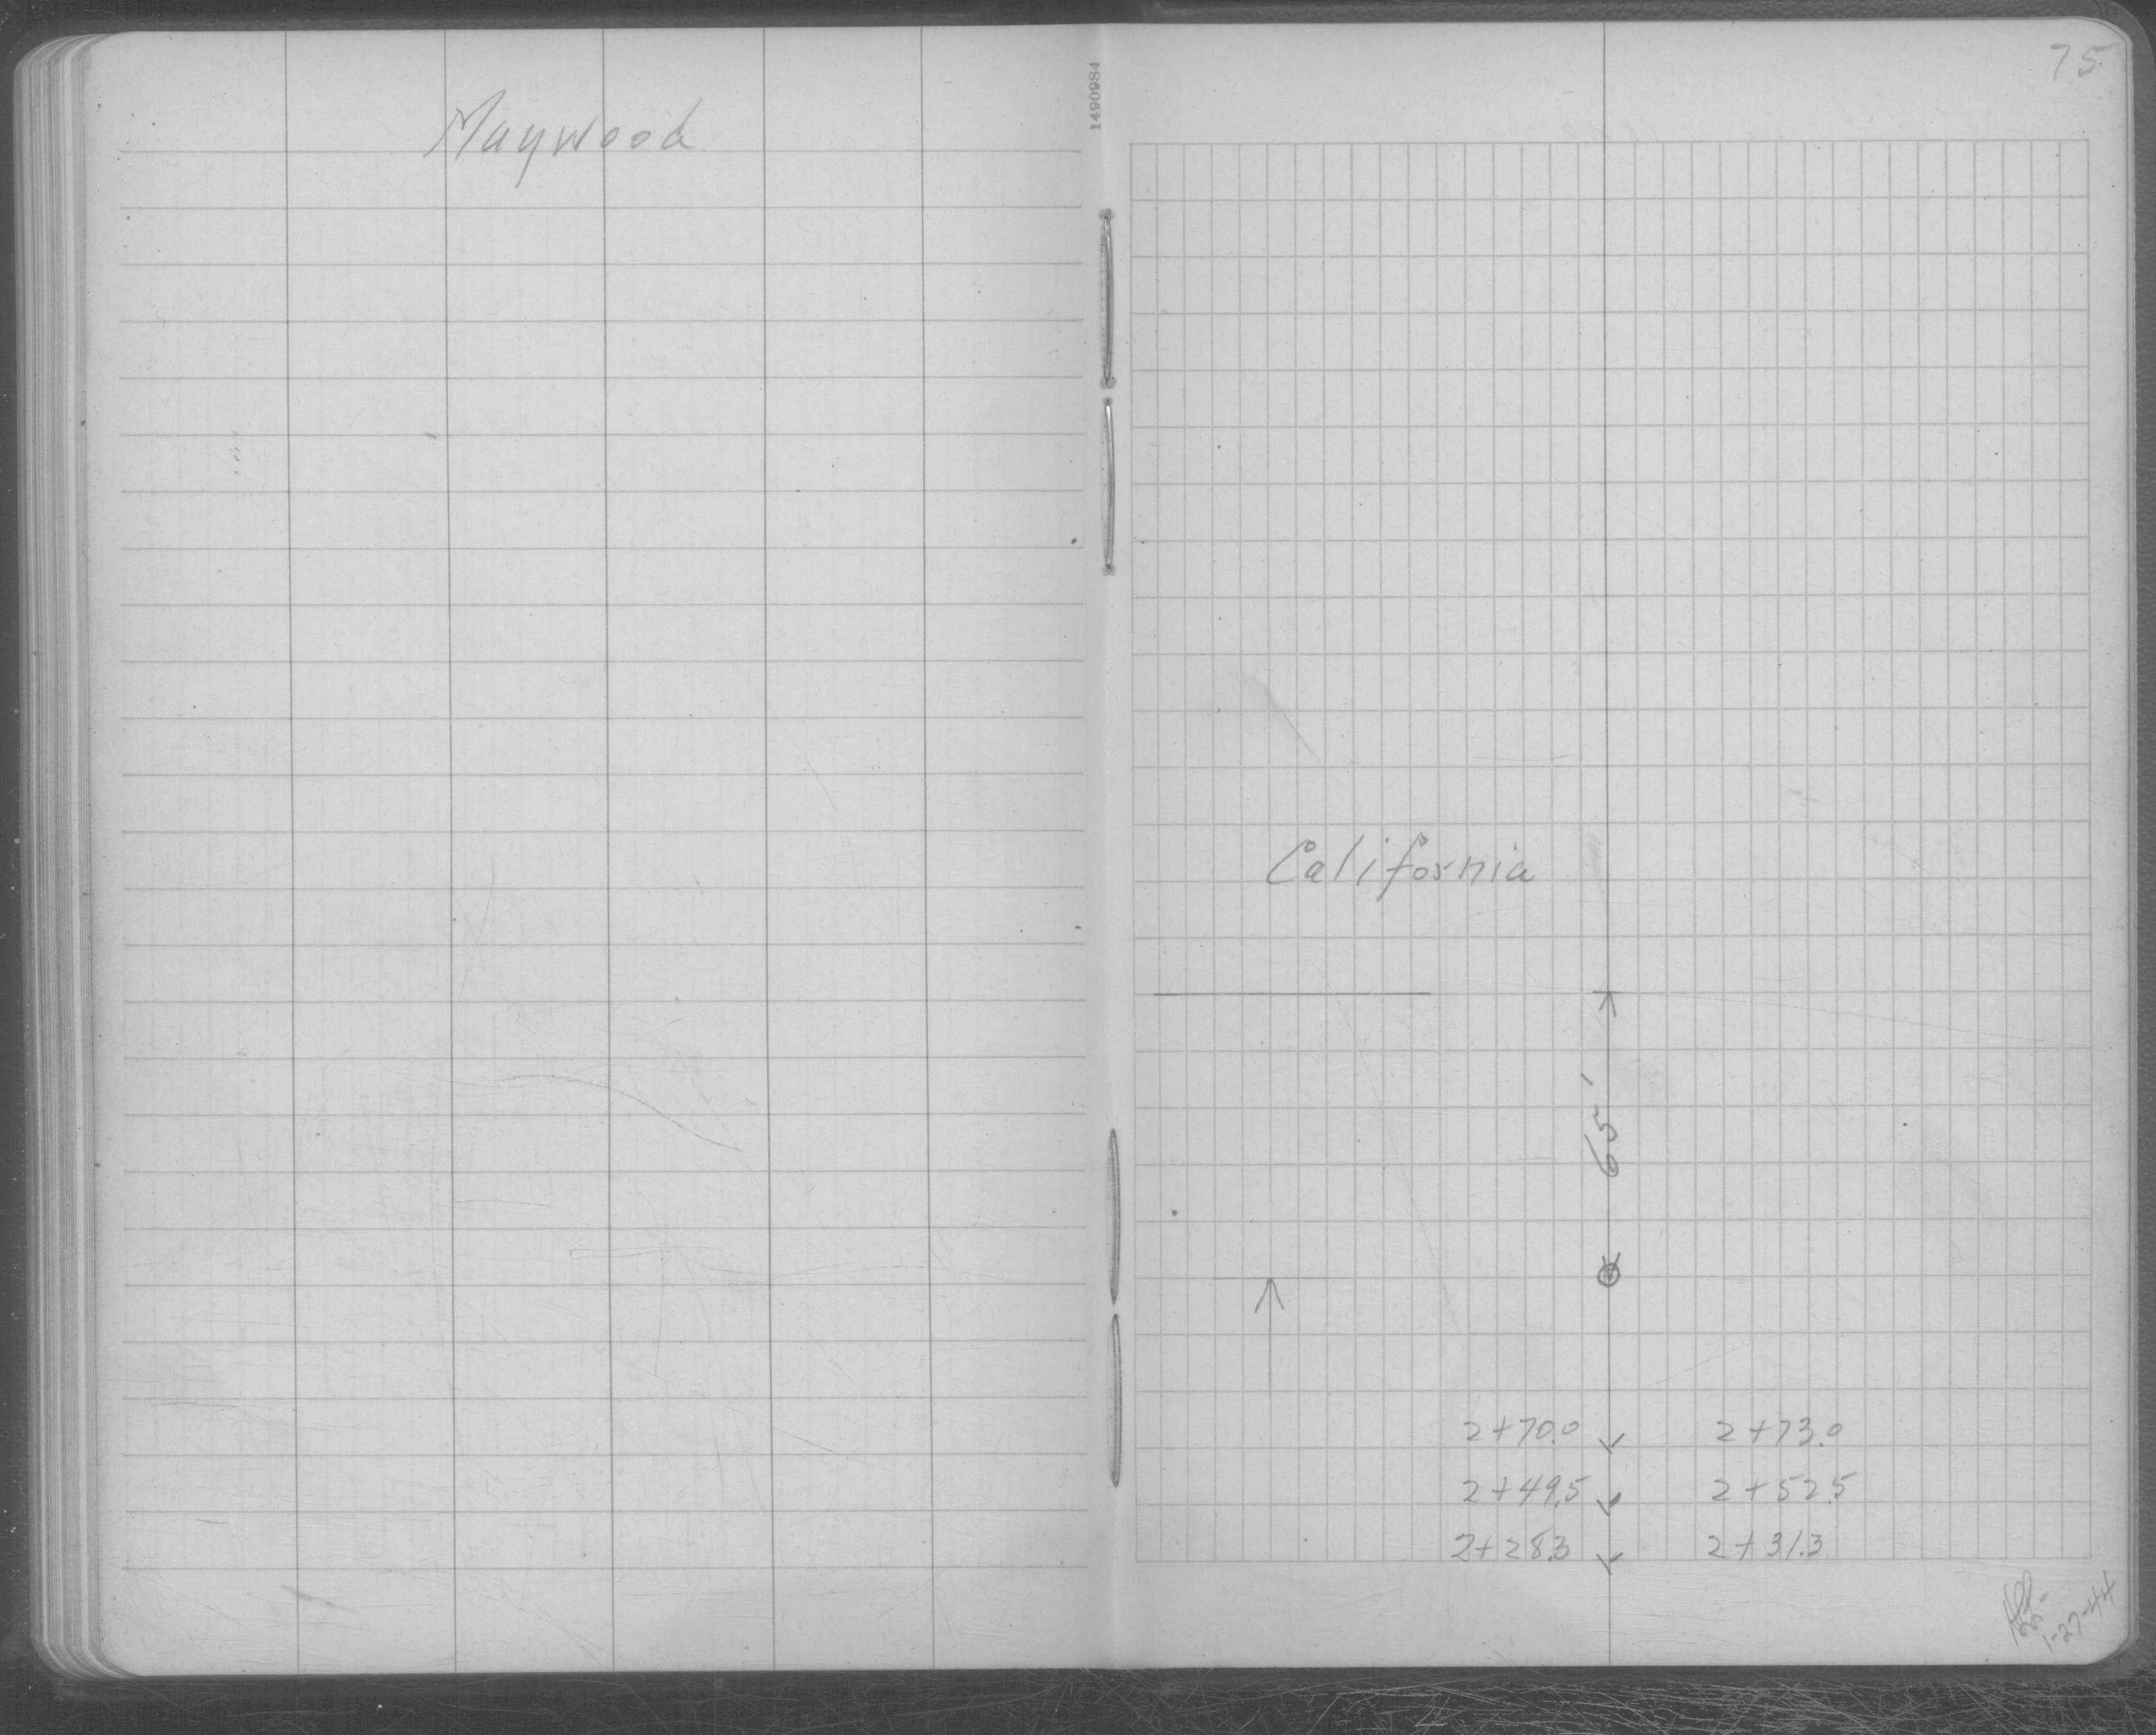 Maywood
1490984
75
California
65'
2+70.0 2+73.0
2+49.5 2+52.5
2+28.3 2+31.3
1-27-44